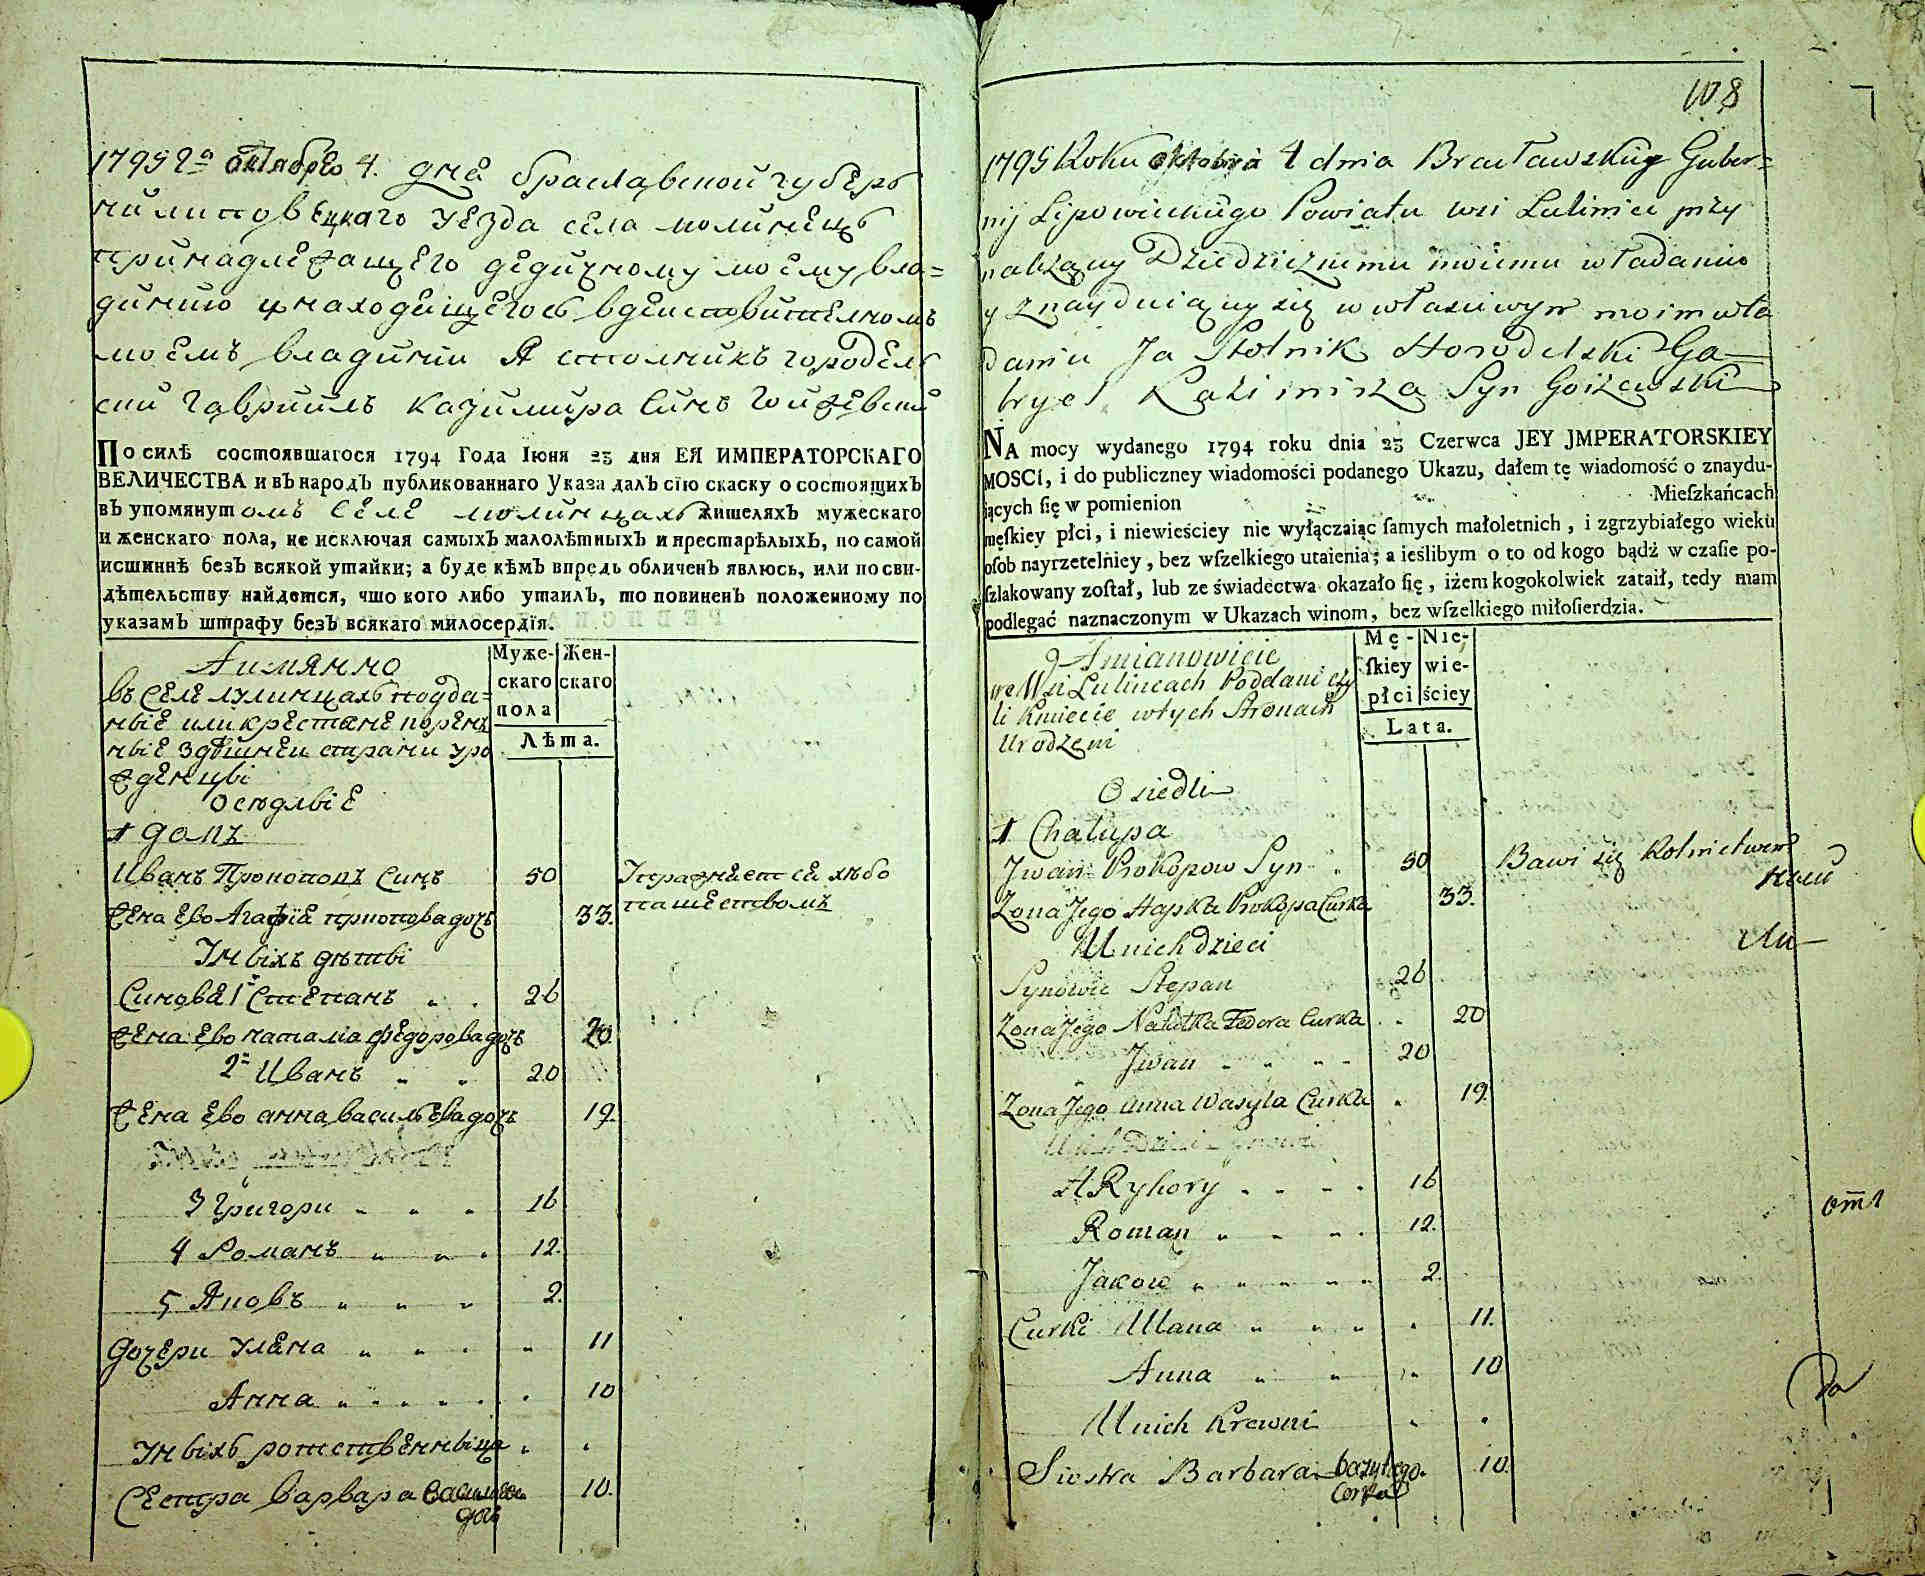 1795 го октября 4. дня браславской губер
нии липовецкого уезда села люлинецъ
принадлежащего дедичному моему вла=
динию и находещегось вдействителномъ
моемъ владинии Я столникъ городел
ский Гавриилъ Казимира Синъ Гойжевский
По силѣ состоявшагося 1794 Года Іюня 23 дня ЕЯ ИМПЕРАТОРСКАГО
ВЕЛИЧЕСТВА и въ народъ публикованнаго Указа далъ сїю скаску о состоящихъ
въ упомянутомъ Селе люлинцахъ жителяхъ мужескаго
и женскаго пола, не исключая самыхъ малолѣтныхъ и престарѣлыхъ, по самой
истиннѣ безъ всякой утайки; а буде кѣмъ впредь обличенъ явлюсь, или по сви-
дѣтельству найдется, что кого либо утаилъ, то повиненъ положенному по
указамъ штрафу безъ всякаго милосердїя.
Аимянно
въ Селе люлинцахъ подда=
ніе или крестяне корен
ніе здѣшнеи страни уро
женці
оседліе
Муже-
скаго
пола
Жен-
скаго
Лѣта.
1 домъ
Иванъ Прокопомъ Синъ 50 Упражняется хлѣбо
пашествомъ
жена ево Агафіе прокопова дочь 33.
Унѣихъ дѣти
Синове 1й Степанъ 26
жена ево наталіа федорова дочь 20
2й Иванъ 20
жена ево анна василѣва дочь 19.
3 Григори 16
4 Романъ 12.
5 Яковъ 2.
дочери улена 11
Анна 10
Унѣихъ родственница
Сестра варвара Василева 10.
дочь
108
1795 Roku oktobra 4 dnia Bracławskuy Guber=
nij Lipowieckugo Powiatu wsi Luliniec przy
nalezącuy Dziedzicznemu moiemu władaniu
y znayduiącuy się w własciwym moim wła
daniu Ja Stolnik Horodelski Ga
bryel Kazimirza Syn Goizewski
NA mocy wydanego 1794 roku dnia 23 Czerwca JEY JMPERATORSKIEY
MOSCI, i do publiczney wiadomości podanego Ukazu, dałem tę wiadomość o znaydu-
iących ſię w pomienion Mieſzkańcach
męſkiey płci, i niewieściey nie wyłączaiąc ſamych małoletnich, i zgrzybiałego wieku
oſob nayrzetelniey, bez wſzelkiego utaienia; a ieślibym o to od kogo bądź w czaſie po-
ſzlakowany zoſtał, lub ze świadectwa okazało ſię, iżem kogokolwiek zataił, tedy mam
podlegać naznaczonym w Ukazach winom, bez wſzelkiego miłoſierdzia.
Amianowicie
we Wsi Lulincach Poddani czy
li Kmiecie wtych Stronach
Urodzeni
Osiedli
Mę-
ſkiey
płci
Nie-
wie-
ściey
Lata.
1 Chalupa
Jwan Prokopow Syn 50 Bawi się Rolnictwem
Zona Jego Hapka Prokopa Curka 33.
U nich dzieci
Synowie Stepan 26
Zona Jego Natalka Fedora Curka 20
Jwan 20
Zona Jego Anna Wasyla Curka 19.
HRyhory 16
Roman 12.
Jakow 2.
Curki Ulana 11.
Anna 10
U nich Krewni
Siostra Barbara 10.
Corka